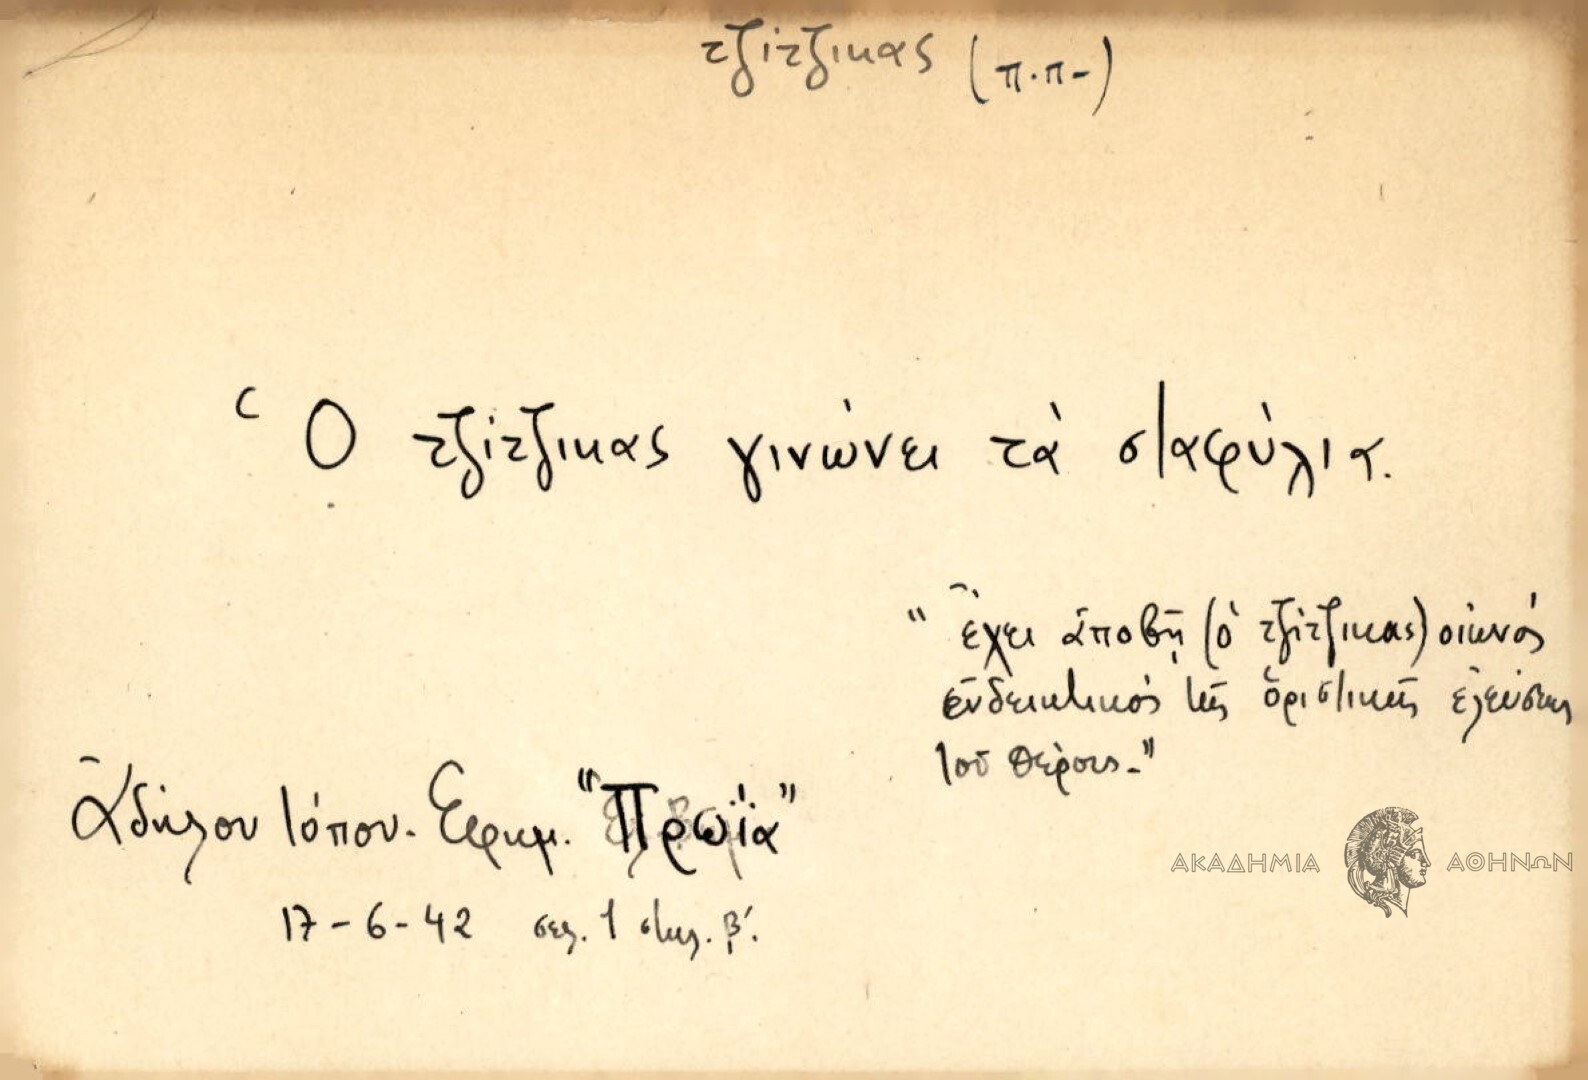 τζίτζικας (π.π-)
Ὁ τζίτζικας γινώνει τὰ σταφύλια.
"ἔχει ἀποβῆ (ὁ τζίτζικας) οἰωνός
ἐνδεικτικός τῆς ὁριστικῆς ἐλεύσεως
τοῦ θέρους-"
Ἀδήλου τόπου. Ἐφημ. "Πρωΐα"
17-6-42 σελ. 1 στηλ. β'.
ΑΚΑΔΗΜΙΑ ΑΘΗΝΩΝ